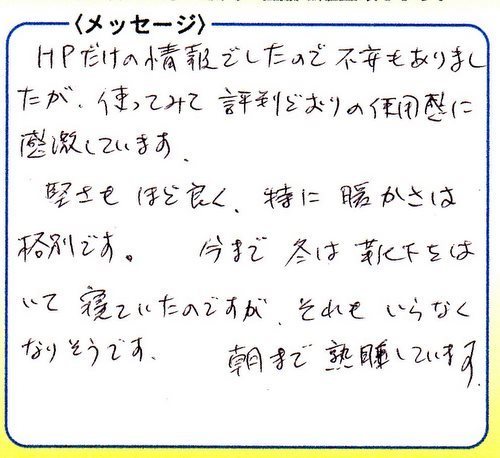 〈メッセージ〉
HPだけの情報でしたので不安もありまし
たが、使ってみて評判どおりの使用感に
感激しています。
堅さもほど良く、特に暖かさは
格別です。 今まで冬は靴下をは
いて寝ていたのですが、それもいらなく
なりそうです。 朝まで熟睡しています。